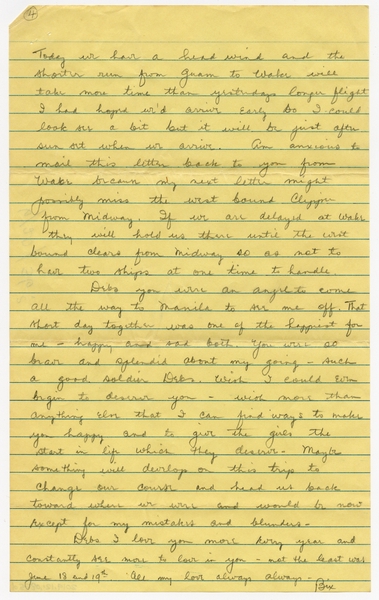 4
Today we have a head wind and the
shorter run from Guam to Wake will
take more time than yesterdays longer flight
I had hoped we'd arrive early so I could
look see a bit but it will be just after
sun set when we arrive. Am anxious to
mail this letter back to you from
Wake because my next letter might
possibly miss the west bound Clipper
from Midway. If we are delayed at Wake
they will hold us there until the west
bound clears from Midway so as not to
have two ships at one time to handle
Debs you were an angel to come
all the way to Manila to see me off. That
short day together was one of the happiest for
me - happy and sad both. You were so
brave and splendid about my going - such
a good soldier Debs. Wish I could even
begin to deserve you - wish more than
anything else that I can find ways to make
you happy and to give the girls the
start in life which they deserve - Maybe
something will develop on this trip to
change our course and head us back
toward where we were and would be now
except for my mistakes and blunders -
Debs I love you more every year and
constantly see more to love in you - not the least was
June 18 and 19th All my love always always -
Bix